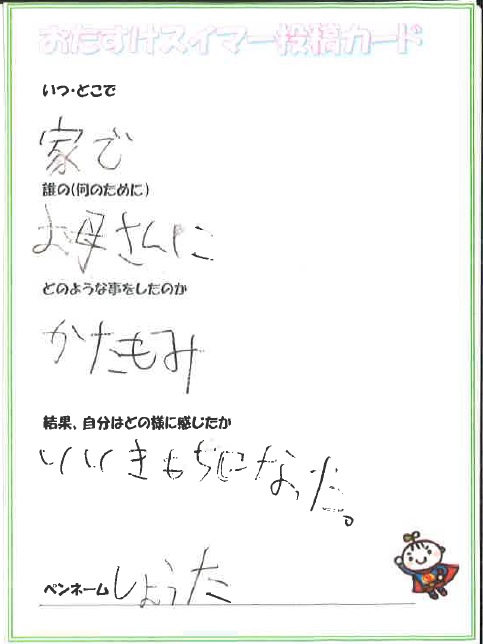 おたすけスイマー投稿カード
いつ・どこで
家で
誰の(何のために)
お母さんに
どのような事をしたのか
かたもみ
結果、自分はどの様に感じたか
いいきもちになった。
ペンネームしょうた